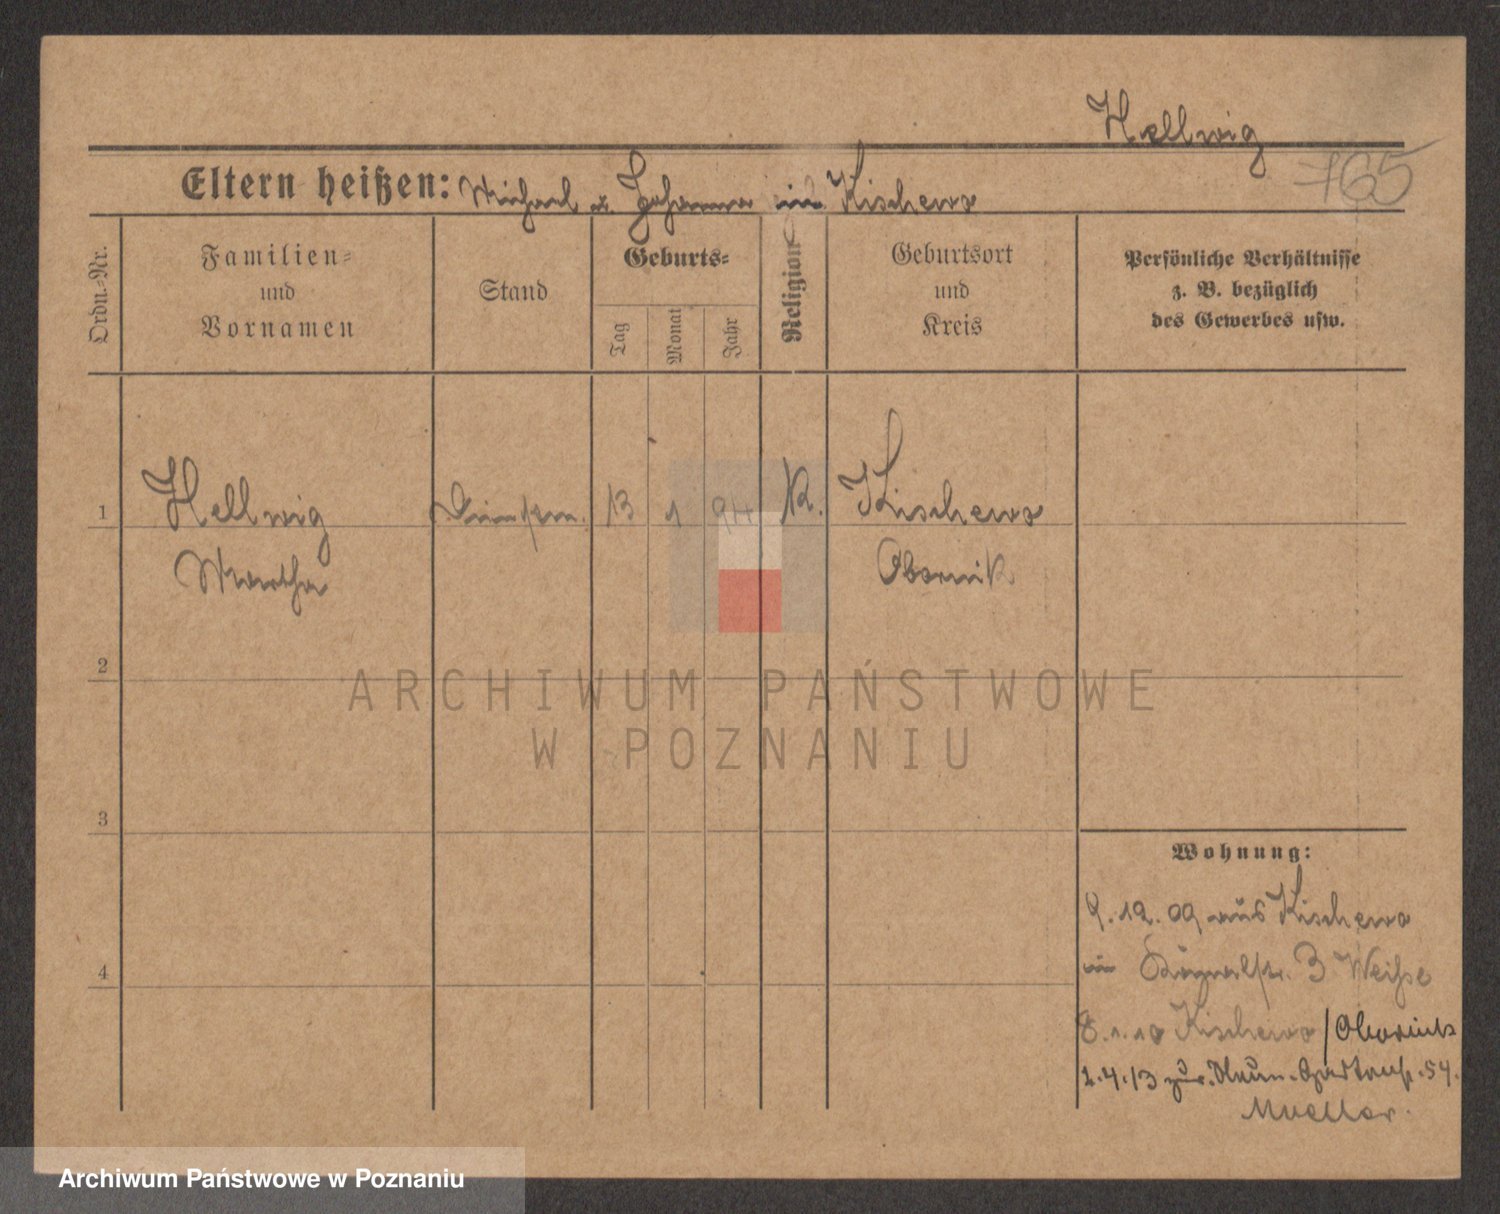 Hellwig
765
Eltern heißen: Michael u. Johanna in Kischewo
Ordn.-Nr.
Familien-
und
Vornamen
Stand
Geburts-
Tag
Monat
Jahr
Religion
Geburtsort
und
Kreis
Persönliche Verhältnisse
z. B. bezüglich
des Gewerbes usw.
1 Hellwig 13 1 94 K. Kischewo
Martha Obornik
2
ARCHIWUM PAŃSTWOWE
W POZNANIU
3
Wohnung:
9.12.09 aus Kischewo
in 3 Weiße
4
8.1.10 Kischewo / Obornik
2.4.13 zur. 54.
Mueller.
Archiwum Państwowe w Poznaniu